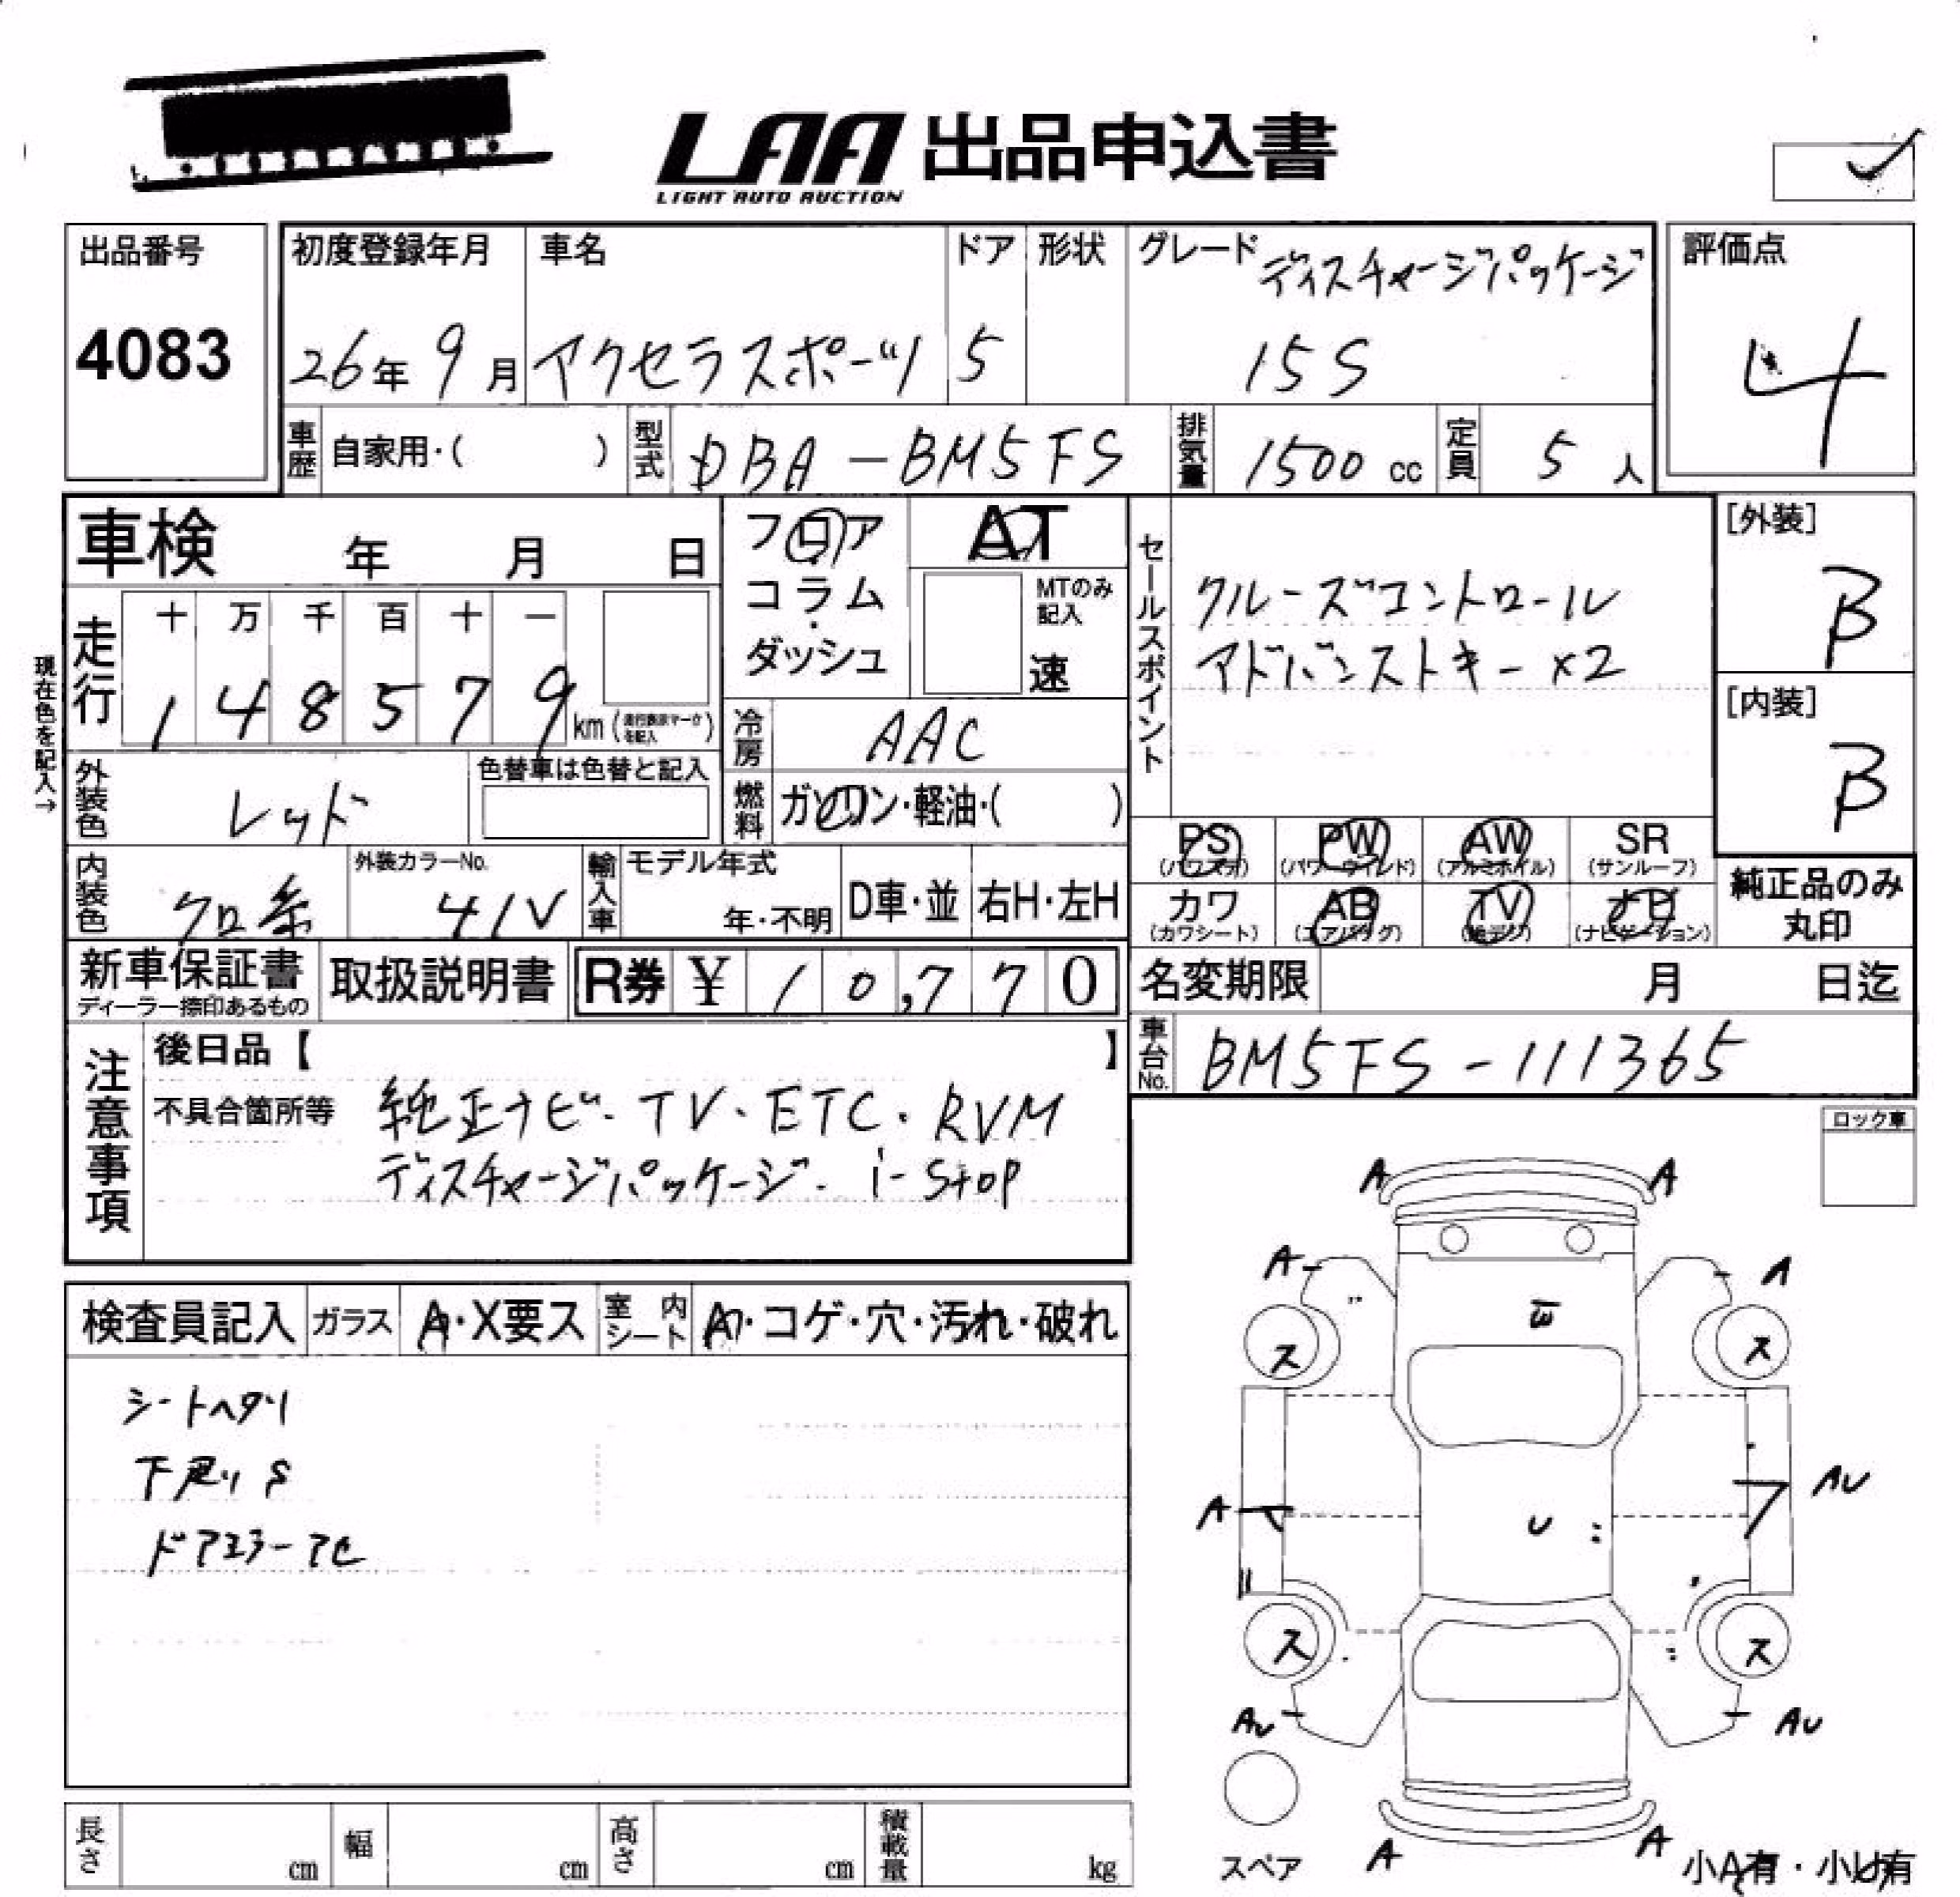 LAA 出品申込書
LIGHT AUTO AUCTION
出品番号
4083
初度登録年月
26年 9月
車名
アクセラスポーツ
ドア
5
形状
グレード
ディスチャージパッケージ
15S
評価点
4
車歴 自家用・( )
型式 DBA-BM5FS
排気量 1500 cc
定員 5 人
車検 年 月 日
フロア
コラム
・
ダッシュ
AT
MTのみ
記入
速
セールスポイント
クルーズコントロール
アドバンストキー×2
[外装]
B
[内装]
B
現在色を記入→
走行
十 万 千 百 十 一
1 4 8 5 7 9 km
冷房 AAC
外装色 レッド
色替車は色替と記入
燃料 ガソリン・軽油・( )
PS PW AW SR
(パワステ) (パワーウィンド) (アルミホイル) (サンルーフ)
カワ AB TV ナビ
(カワシート) (エアバッグ) (地デジ) (ナビゲーション)
純正品のみ
丸印
内装色 クロ系
外装カラーNo.
41V
輸入車
モデル年式
年・不明
D車・並
右H・左H
新車保証書
ディーラー捺印あるもの
取扱説明書
R券 ¥ 10,770
名変期限 月 日迄
車台No. BM5FS-111365
注意事項
後日品【 】
不具合箇所等
純正ナビ・TV・ETC・RVM
ディスチャージパッケージ・i-stop
ロック車
検査員記入
ガラス A・X要ス
室内シート
・コゲ・穴・汚れ・破れ
シートヘタリ
下廻りS
ドアミラーアセ
A A
A A
ス ス
A AU
U
ス ス
AU AU
A A
スペア
小A有・小U有
長さ cm
幅 cm
高さ cm
積載量 kg